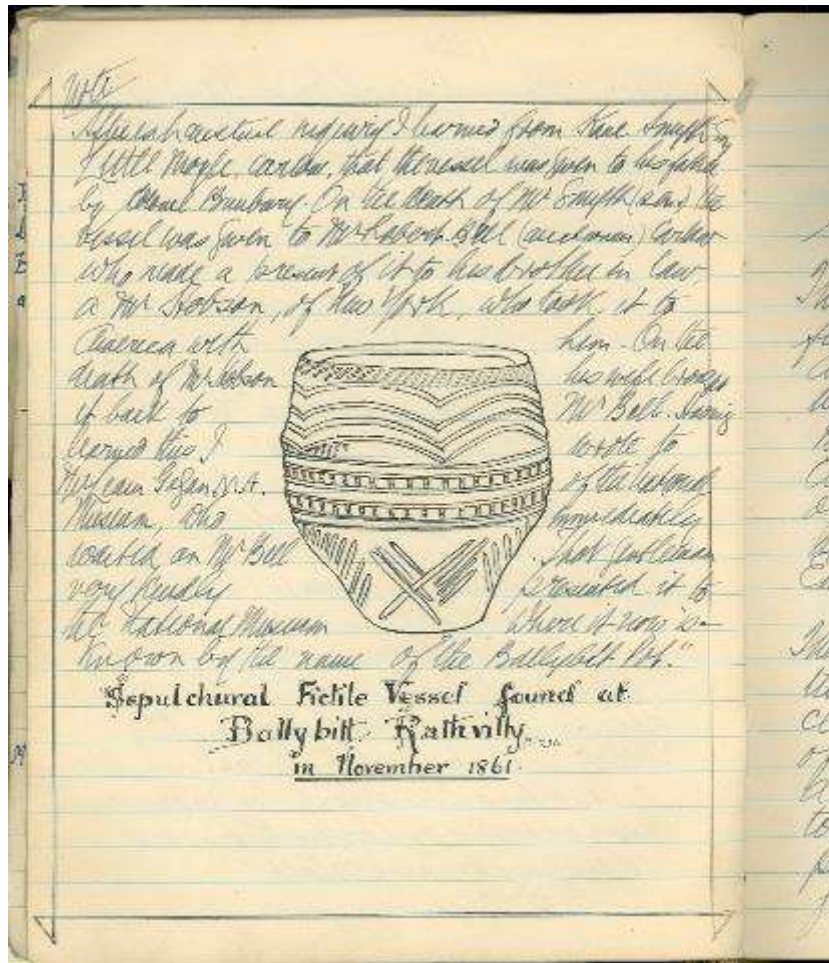 Note
After exhaustive inquiry I learned from Kane Smyth
Little Moyle, Carlow, that the vessel was given to his father
by Colonel Bunbury. On the death of Mr Smyth (sen) the
vessel was given to Mr Robert Bell (auctioneer) Carlow
who made a present of it to his brother in law
a Mr Hobson, of New York, who took it to
America with him - On the
death of Mr Hobson his wife brought
it back to Mr Bell. Having
learned this I wrote to
Gogan M.A. of the National
Museum, who immediately
waited on Mr Bell. That gentleman
very kindly presented it to
the National Museum Where it now is
known by the name of the Ballybitt Pot."
Sepulchural Fictile Vessel found at
Ballybitt Rathvilly
in November 1861.